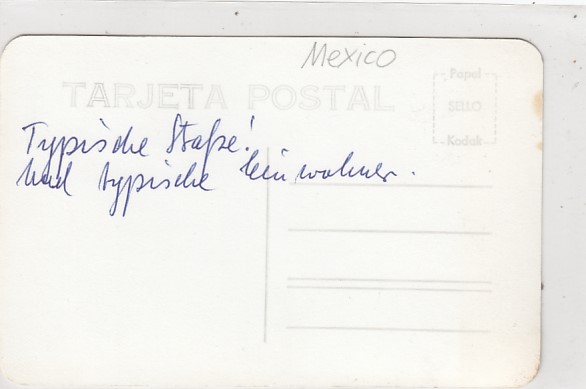 Mexico
TARJETA POSTAL
Papel
SELLO
Kodak
Typische Staße!
und typische Einwohner.